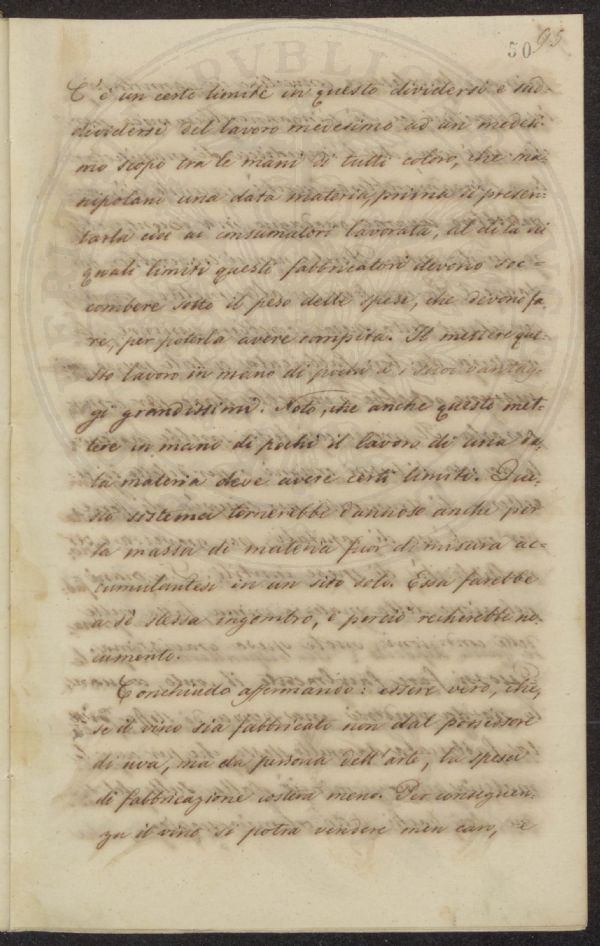 50 95
C'è un certo limite in questo dividersi e sud-
dividersi del lavoro medesimo ad un medesi-
mo scopo tra le mani di tutti coloro, che ma-
nipolani una data materia prima di presen-
tarla cioè ai consumatori lavorata, al di là di
quali limiti questi fabbricatori devono soc-
combere sotto il peso delle spese, che devono fa-
re, per poterla avere compita. Il mettere que-
sto lavoro in mano di pochi à i suoi vantag-
gi grandissimi. Noto, che anche questo met-
tere in mano di pochi il lavoro di una da-
ta materia deve avere certi limiti. Que-
sto sistema tornerebbe dannoso anche per
la massa di materia fuor di misura ac-
cumulantesi in un sito solo. Essa farebbe
a sè stessa ingombro, e perciò recherebbe no-
cumento.
Conchiudo affermando: essere vero, che,
se il vino sia fabbricato non dal possessore
di uva, ma da persona dell'arte, la spesa
di fabbricazione costerà meno. Per conseguen-
za il vino si potrà vendere men caro, e